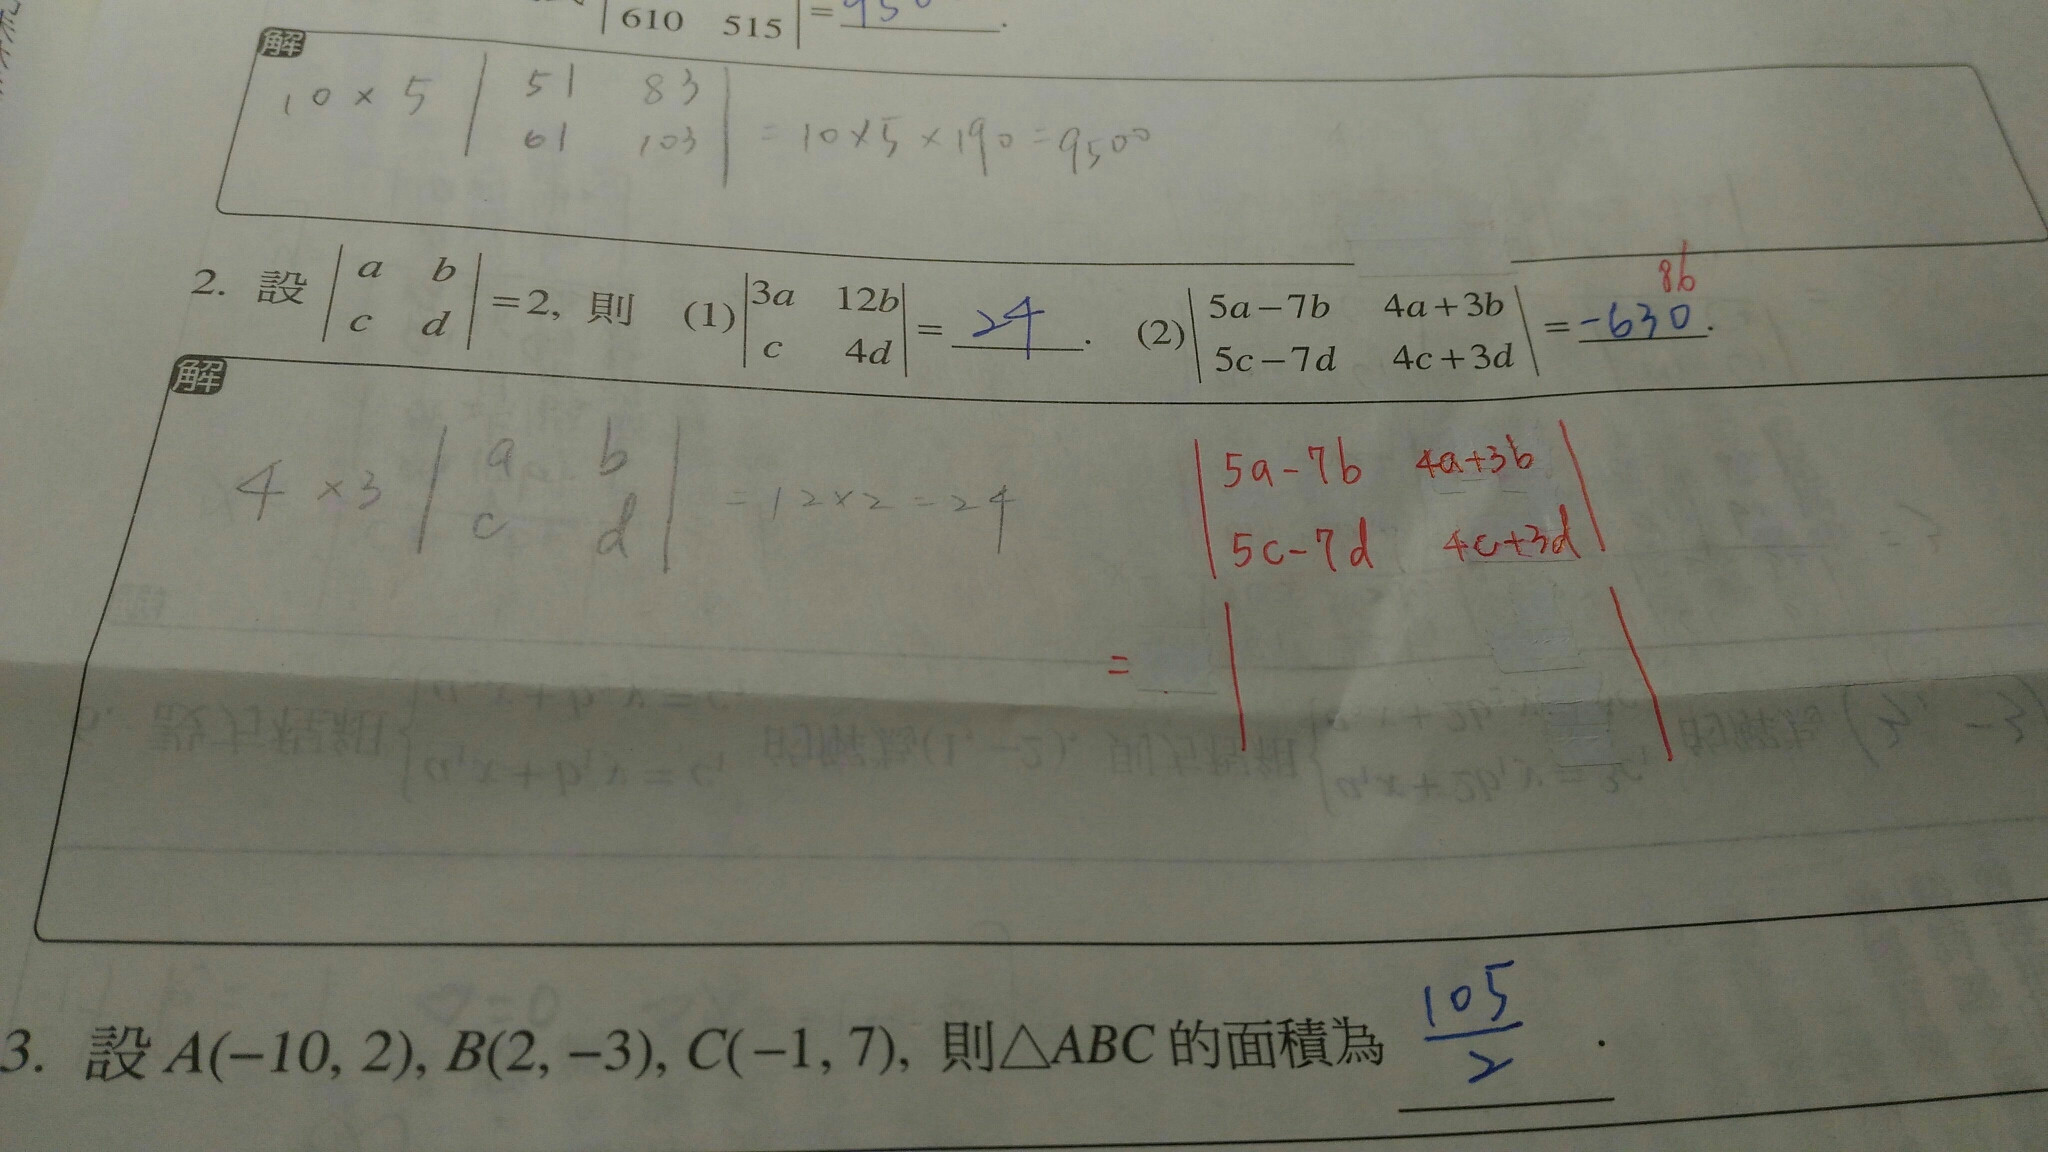 610 515 = 950
解
10 × 5 | 51 83 |
| 61 103 | = 10×5×190 = 9500
2. 設 | a b | = 2, 則 (1) | 3a 12b | = 24. (2) | 5a−7b 4a+3b | = -630. 86
| c d | | c 4d | | 5c−7d 4c+3d |
解
4 ×3 | a b | = 12×2 = 24
| c d |
| 5a-7b 4a+3b |
| 5c-7d 4c+3d |
= | |
3. 設 A(−10, 2), B(2, −3), C(−1, 7), 則△ABC 的面積為 105/2 .